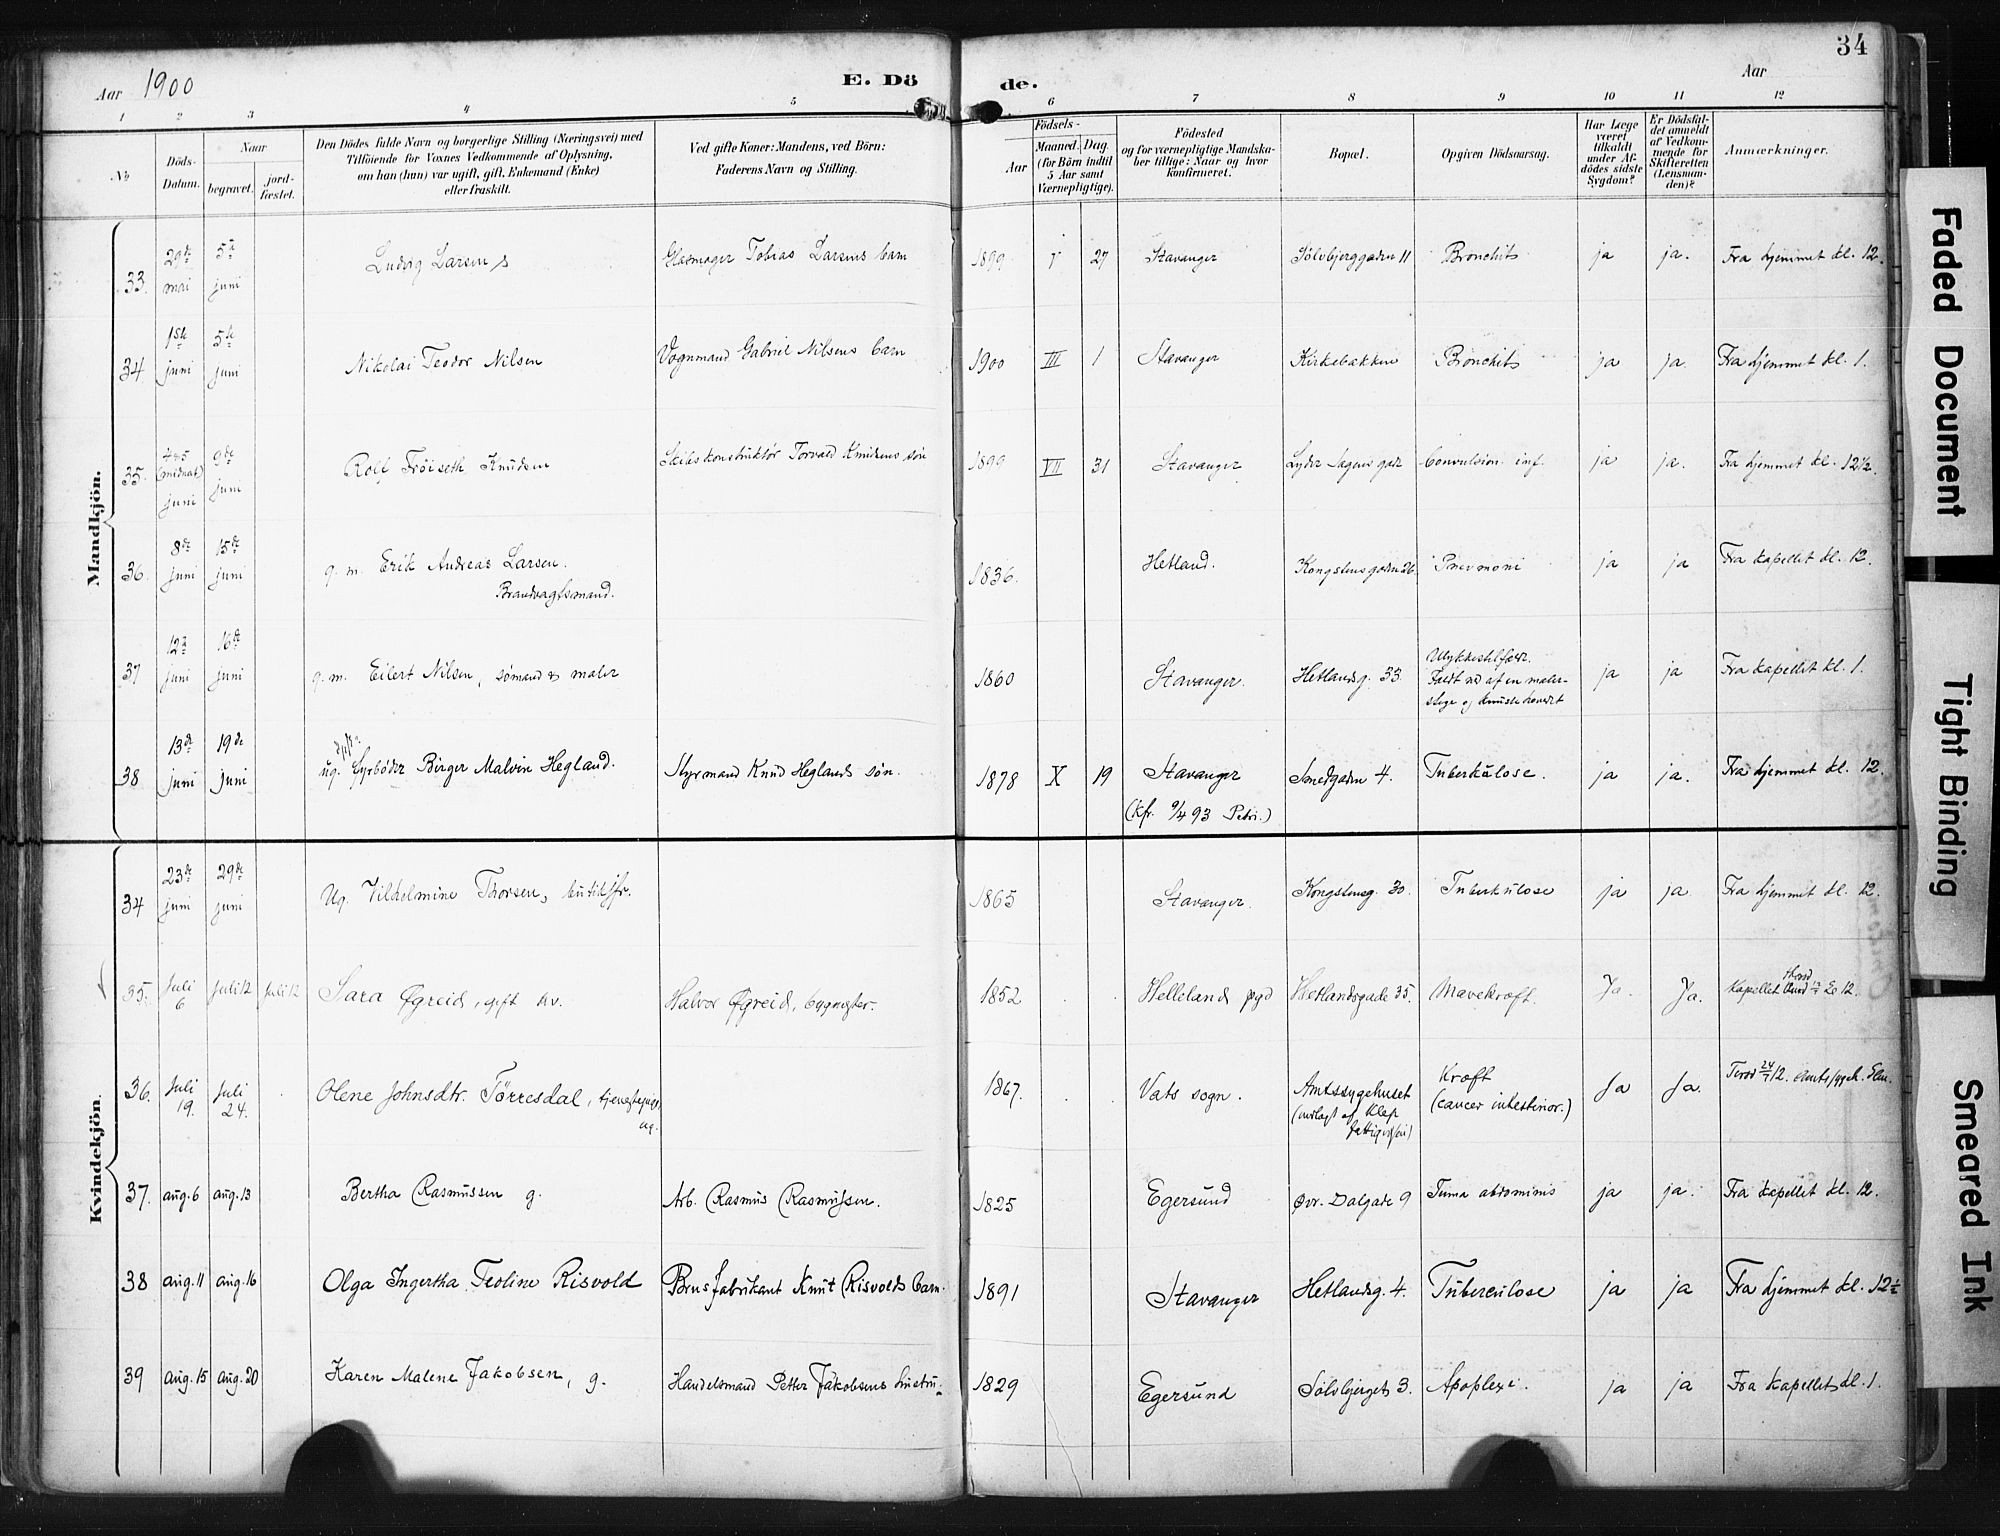 34
Aar 1900
E. Dö
de.
Aar
1 2 3 4 5 6 7 8 9 10 11 12
№
Döds-Datum.
Naar
begravet.
jord-fæstet.
Den Dödes fulde Navn og borgerlige Stilling (Næringsvei) med
Tilföiende for Voxnes Vedkommende af Oplysning,
om han (hun) var ugift, gift, Enkemand (Enke)
eller fraskilt.
Ved gifte Koner: Mandens, ved Börn:
Faderens Navn og Stilling.
Födsels-
Aar
Maaned. Dag.
(for Börn indtil
5 Aar samt
Værnepligtige).
Födested
og for værnepligtige Mandska-
ber tillige: Naar og hvor
konfirmeret.
Bopæl.
Opgiven Dödsaarsag.
Har Læge
været
tilkaldt
under Af-
dödes sidste
Sygdom?
Er Dödsfal-
det anmeldt
af Vedkom-
mende for
Skifteretten
(Lensman-
den)?
Anmærkninger.
Mandkjön.
33. 29de mai 5te juni Ludvig Larsen Glasmager Tobias Larsens barn 1899 V 27 Stavanger Sölvbjerggaden 11 Bronchit ja ja. Fra hjemmet kl. 12.
34 1ste juni 5te juni Nikolai Teodor Nilsen Vognmand Gabriel Nilsens barn 1900 III 1 Stavanger Kirkebakken Bronchit ja ja. Fra hjemmet kl. 1.
35. (midnat) juni 9de juni Rolf Tröiseth Knudsen Skibskonstruktör Torvald Knudsens sön 1899 VII 31 Stavanger Lyder Sagens gade Convulsion. inf. ja ja. Fra hjemmet kl. 12 1/2.
36. 8de juni 15de juni g. m. Erik Andreas Larsen.
Brandvagtsmand.
1836. Hetland. Kongstensgaden 26. Pnevmoni ja ja Fra kapellet kl. 12.
37 12te juni 16de juni g. m. Eilert Nilsen, sömand & maler 1860 Stavanger. Hetlandsg. 33. Ulykkestilfælde.
Faldt ned af en maler-
stige og knuste hovedet
ja ja Fra kapellet kl. 1.
38 13de juni 19de juni ug. fyrböder Birger Malvin Hegland. Styrmand Knud Heglands sön. 1878 X 19 Stavanger
(kfr. 9/4 93 Petri.)
Smedgaden 4. Tuberkulose. ja ja. Fra hjemmet kl. 12.
Kvindekjön.
34 23de juni 29de juni Ug. Vilhelmine Thorsen, butikfr. 1865 Stavanger. Kongstensg. 30. Tuberkulose ja ja. Fra hjemmet kl. 12.
35. Juli 6 Juli 12 Juli 12 Sara Øgreid, gift kv. Halvor Øgreid, bygmester. 1852 Helleland pgd Hetlandsgade 35. Mavekræft. Ja. Ja. Kapellet kl 12.
36. Juli 19. Juli 24. Olene Johnsdtr. Törresdal, tjenestepige,
ug.
1867. Vats sogn. Amtssygehuset
(indlagt af Klep
fattigv.)
Kræft
(cancer intestinor.)
Ja Ja. 24/7 12.
37. aug. 6 aug. 13 Bertha Rasmussen g. Arb. Rasmus Rasmussen. 1825 Egersund Øvr. Dalgade 9 Tuma abdominis ja ja. Fra kapellet kl. 12.
38 aug. 11 aug. 16 Olga Ingertha Teoline Risvold Brusfabrikant Knut Risvolds barn. 1891 Stavanger Hetlandsg. 4. Tuberculose ja ja Fra hjemmet kl. 12 1/2
39 aug. 15 aug. 20 Karen Malene Jakobsen, g. Handelsmand Petter Jakobsens hustru. 1829 Egersund Sölvbjerget 3. Apoplexi. ja ja Fra kapellet kl. 1.
Faded Document
Tight Binding
Smeared Ink